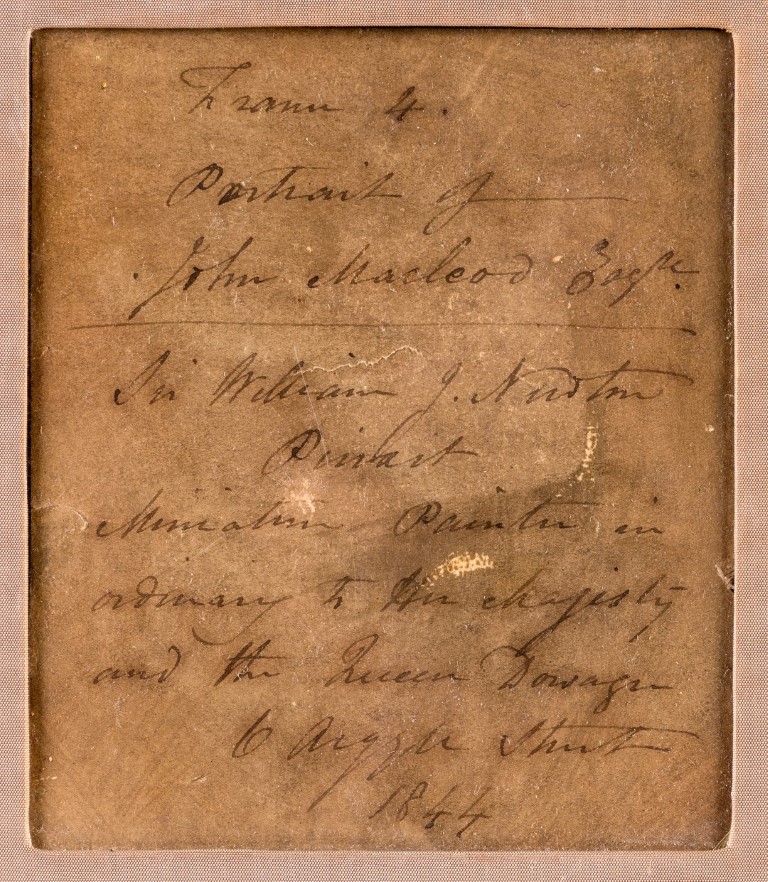 Frame 4.
Portrait of
John Macleod Esqre.
Sir William J. Newton
Pinxait
Miniature Painter in
ordinary to Her Majesty
and the Queen Dowager
6 Argyle Street
1844